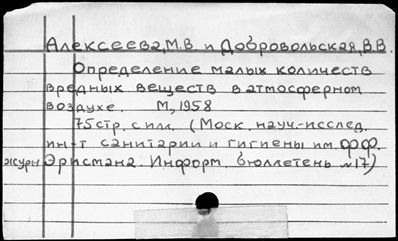 Алексеева, М.В. и Добровольская, В.В.
Определение малых количеств
вредных веществ в атмосферном
воздухе. М, 1958
75 стр. с илл. (Моск. науч.-исслед.
ин-т санитарии и гигиены им. Ф.Ф.
журн Эрисмана. Информ. бюллетень №17)